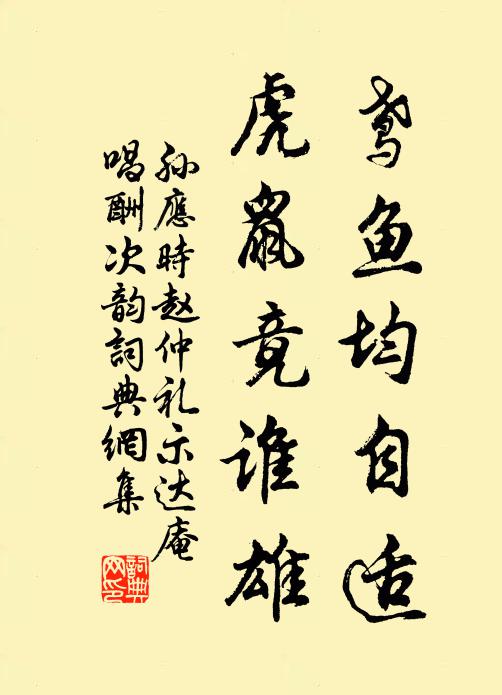 鸢鱼均自适
虎鼠竟谁雄
孙應時赵仲礼示达庵
唱酬次韵詞典網集
詞典网印